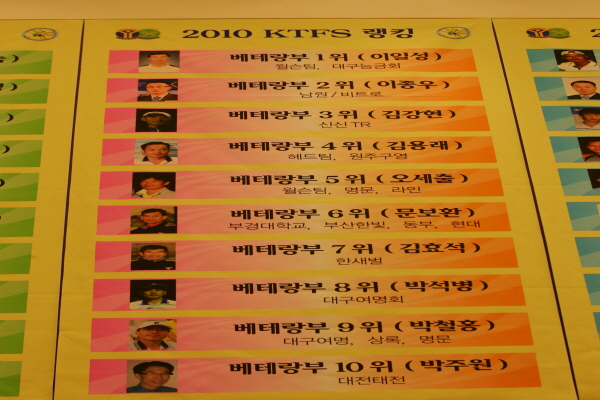 2010 KTFS 랭킹
베테랑부 1 위 ( 이일성 )
윌슨팀, 대구능금회
베테랑부 2 위 ( 이종우 )
남원/비트로
베테랑부 3 위 ( 김강현 )
신신TR
베테랑부 4 위 ( 김용래 )
헤드팀, 원주구영
베테랑부 5 위 ( 오세출 )
윌슨팀, 명문, 라인
베테랑부 6 위 ( 문보환 )
부경대학교, 부산한빛, 동부, 현대
베테랑부 7 위 ( 김효석 )
한새벌
베테랑부 8 위 ( 박석병 )
대구여명회
베테랑부 9 위 ( 박철홍 )
대구여명, 상록, 명문
베테랑부 10 위 ( 박주원 )
대전태전